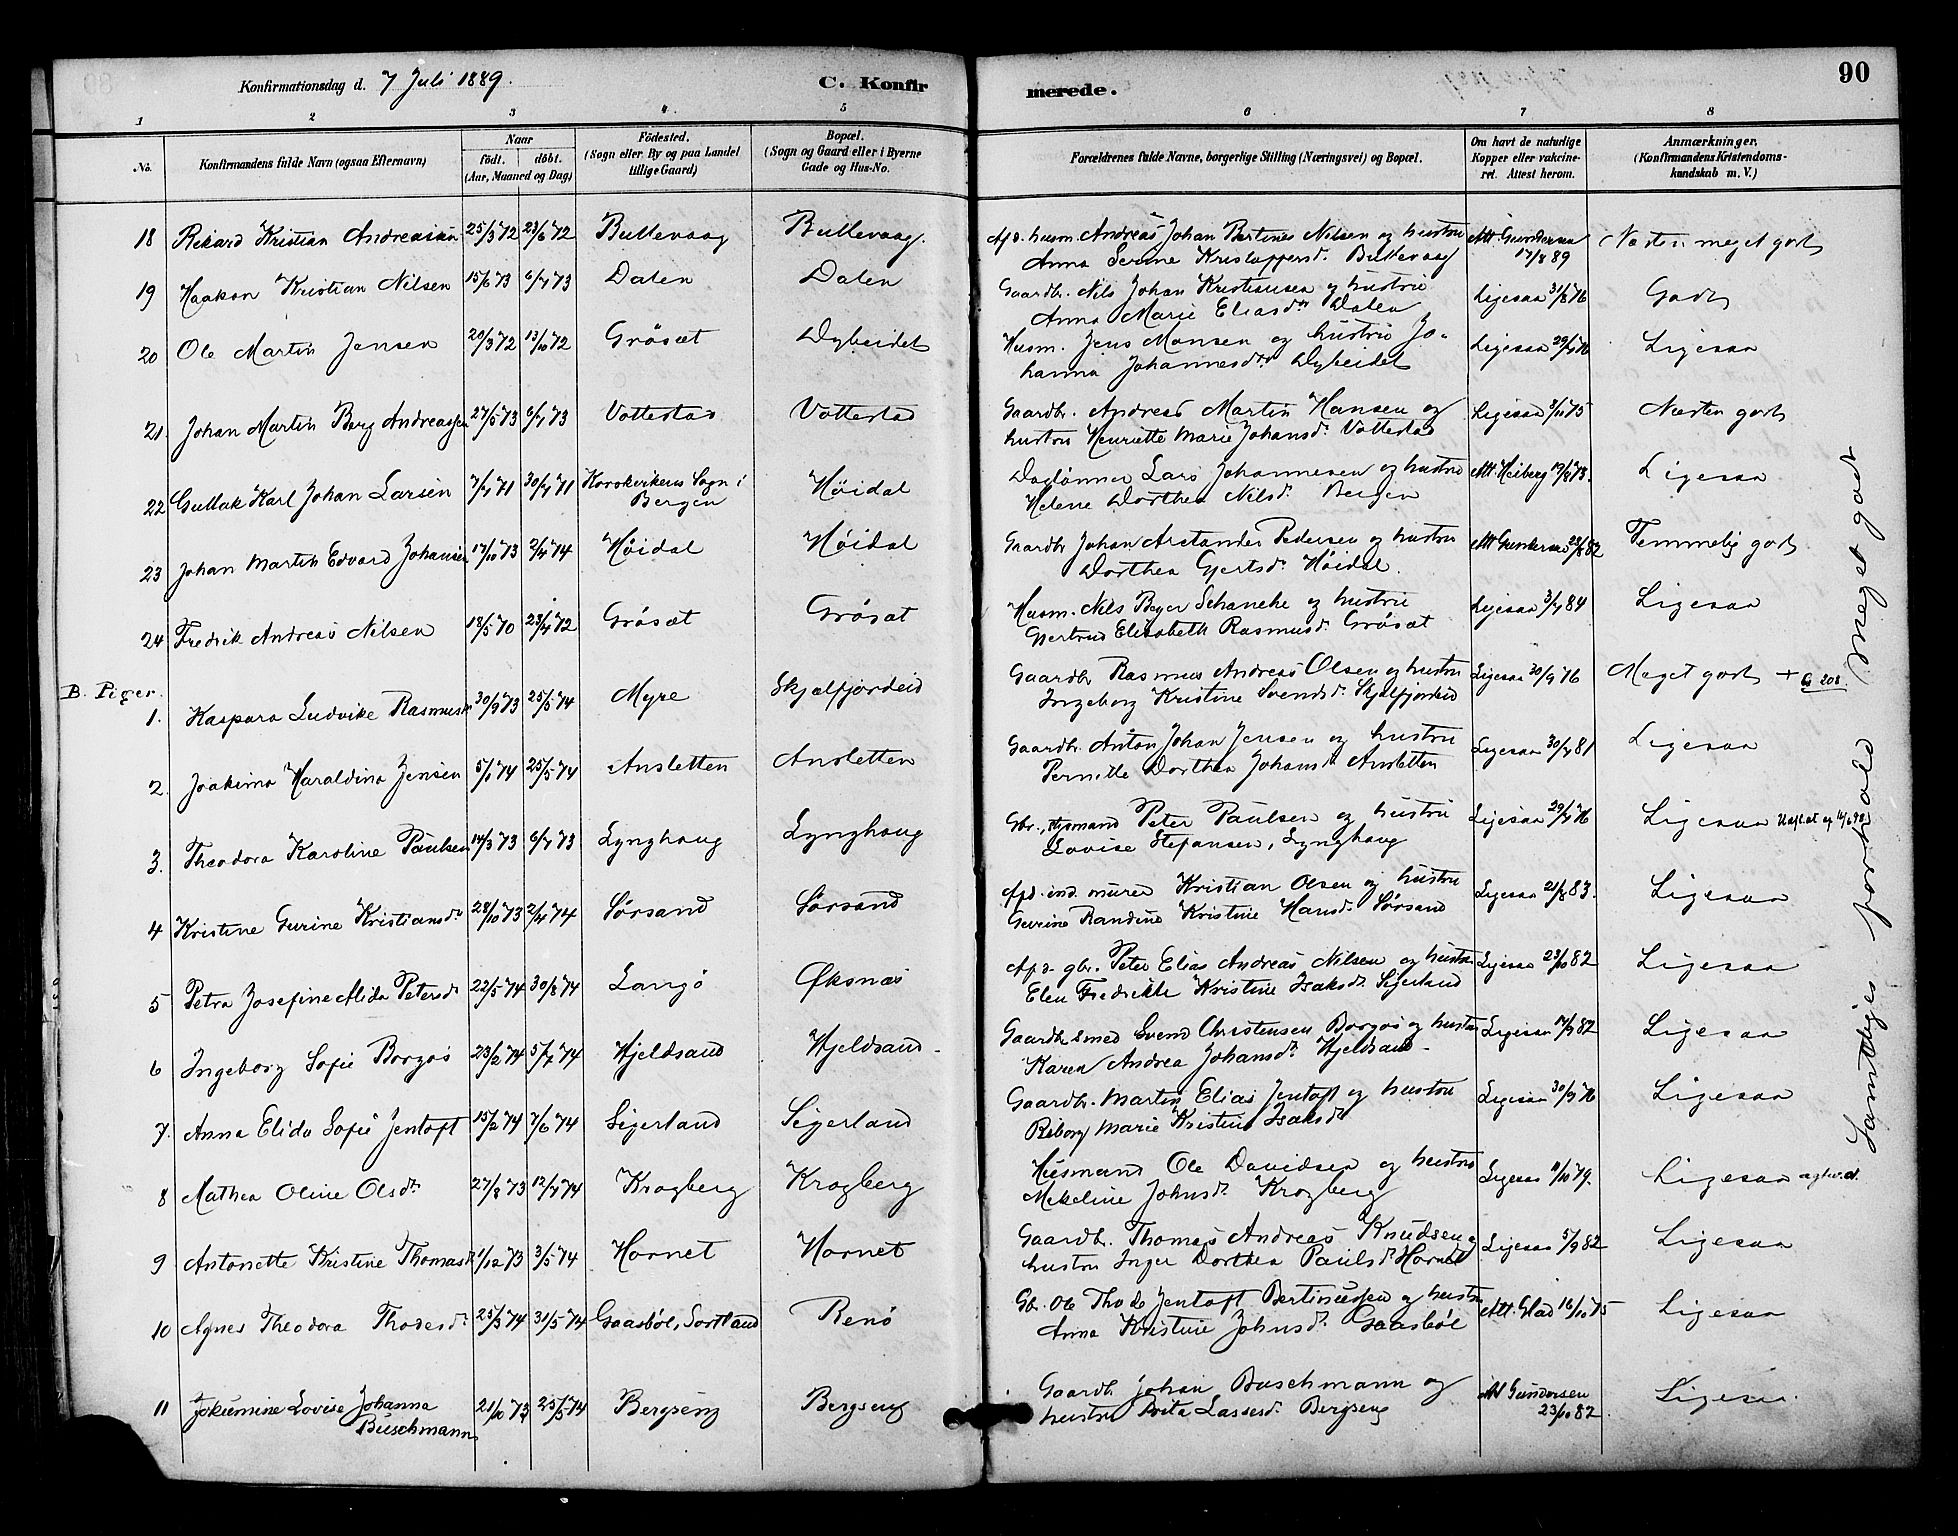 Konfirmationsdag d. 7 Juli 1889.
C. Konfirmerede.
90
1 2 3 4 5 6 7 8
No.
Konfirmandens fulde Navn (ogsaa Efternavn)
Naar
født. døbt.
(Aar, Maaned og Dag)
Födested.
(Sogn eller By og paa Landet
tillige Gaard)
Bopæl.
(Sogn og Gaard eller i Byerne
Gade og Hus-No.
Forældrenes fulde Navne, borgerlige Stilling (Næringsvei) og Bopæl.
Om havt de naturlige
Kopper eller vakcine-
ret. Attest herom.
Anmærkninger.
(Konfirmandens Kristendoms-
kundskab m. V.)
18 Rikard Kristian Andreassen 25/3 72 23/6 72 Buttevaag Buttevaag. Afd. husm. Andreas Johan Bertines Nilsen og hustru Att. Gundersen Næsten meget godt
Anna Serine Kristoffersd. Buttevaag 17/8 89
19 Haakon Kristian Nilsen 15/6 73 6/7 73 Dalen Dalen Gaardbr. Nils Johan Kristiansen og hustru Ligesaa 31/8 76 Godt
Anna Marie Eliasdr Dalen
20 Ole Martin Jensen 20/3 72 13/10 72 Grösæt Dybeidet Husm. Jens Monsen og hustru Jo- Ligesaa 29/9 76 Ligesaa
hanna Johannesdr. Dybeidet
21. Johan Martin Berg Andreassen 27/5 73 6/7 73 Vottestad Vottestad Gaardbr. Andreas Martin Hansen og Ligesaa 8/10 75 Næsten godt
hustru Henriette Marie Johansd. Vottestad
22 Gullak Karl Johan Larsen 7/4 71 30/4 71 Korskirkens Sogn i Höidal Daglønner Lars Johannesen og hustru Att. Heiberg 19/8 73. Ligesaa
Bergen Helene Dorthea Nilsd. Bergen
23 Johan Martin Edvard Johansen 17/10 73 2/4 74 Höidal Höidal Gaardbr Johan Arctander Pedersen og hustru Att Gundersen 28/8 82 Temmelig godt
Dorthea Gjertsd. Höidal.
24 Fredrik Andreas Nilsen 18/5 70 28/4 72 Grösæt Grösæt Husm. Nils Beyer Schancke og hustru Ligesaa 3/7 84 Ligesaa
Gjertrud Elisabeth Rasmusd. Grösæt
B. Piger.
1. Kaspara Ludvike Rasmusd. 30/9 73 25/5 74 Myre Skjælfjordeid Gaardbr Rasmus Andreas Olsen og hustru Ligesaa 30/9 76 Meget godt + G 208.
Ingeborg Kristine Svendsd. Skjælfjordeid
2. Joakima Haraldina Jensen 5/1 74 25/5 74 Ansletten Ansletten Gaardbr. Anton Johan Jensen og hustru Ligesaa 30/9 81 Ligesaa
Pernille Dorthea Johansd. Ansletten
3. Theodora Karoline Paulsen 14/3 73 6/7 73 Lynghaug Lynghaug Gbr., Peter Paulsen og hustru Ligesaa 29/9 76 Ligesaa
Lovise Stefansen, Lynghaug
4 Kristine Gurine Kristiansdr 28/10 73 2/4 74 Sørsand Sørsand Afd. ind. murer Kristian Olsen og hustru Ligesaa 21/8 83. Ligesaa
Gurine Randine Kristine Hansd. Sørsand
5 Petra Josefine Alida Petersd. 22/5 74 30/8 74 Langö Øksnæs Afd. gbr. Peter Elias Andreas Nilsen og hustru Ligesaa 23/10 82 Ligesaa
Elen Fredrikke Kristine Isaksd. Sigerland
6 Ingeborg Sofie Borgos 23/2 74 5/7 74 Hjeldsand Hjeldsand Gaardbr smed Svend Christensen Borgos og hustru Ligesaa 17/9 82 Ligesaa
Karen Andrea Johansd. Hjeldsand
7. Anna Elida Sofie Jentoft 15/2 74 7/6 74 Sigerland Sigerland Gaardbr. Martin Elias Jentoft og hustru Ligesaa 30/9 76 Ligesaa
Reborg Marie Kristine Isaksdr
8 Mathea Oline Olsdr. 27/8 73 12/4 74 Krogberg Krogberg Husmand Ole Davidsen og hustru Ligesaa 11/10 79. Ligesaa
Mekeline Johnsd. Krogberg
9 Antonette Kristine Thomasd. 1/12 73 3/5 74 Hornet Hornet Gaardbr. Thomas Andreas Knudsen og Ligesaa 5/9 82 Ligesaa
hustru Inger Dorthea Paulsdr Hornet
10 Agnes Theodora Thodesd. 25/3 74 31/5 74 Gaasböl, Sortland Renö Gbr. Ole Thode Jentoft Bertinussen og hustru Att. Glad 16/10 75 Ligesaa
Anna Kristine Johnsd. Gaasböl
11 Jokumine Lovise Johanna 21/10 73 25/5 74 Bergseng Bergseng Gaardb. Johan Buschmann og Att Gundersen Ligesaa.
Buschmann hustru Brita Lassesd. Bergseng 23/10 82
Samtliges forhold meget godt